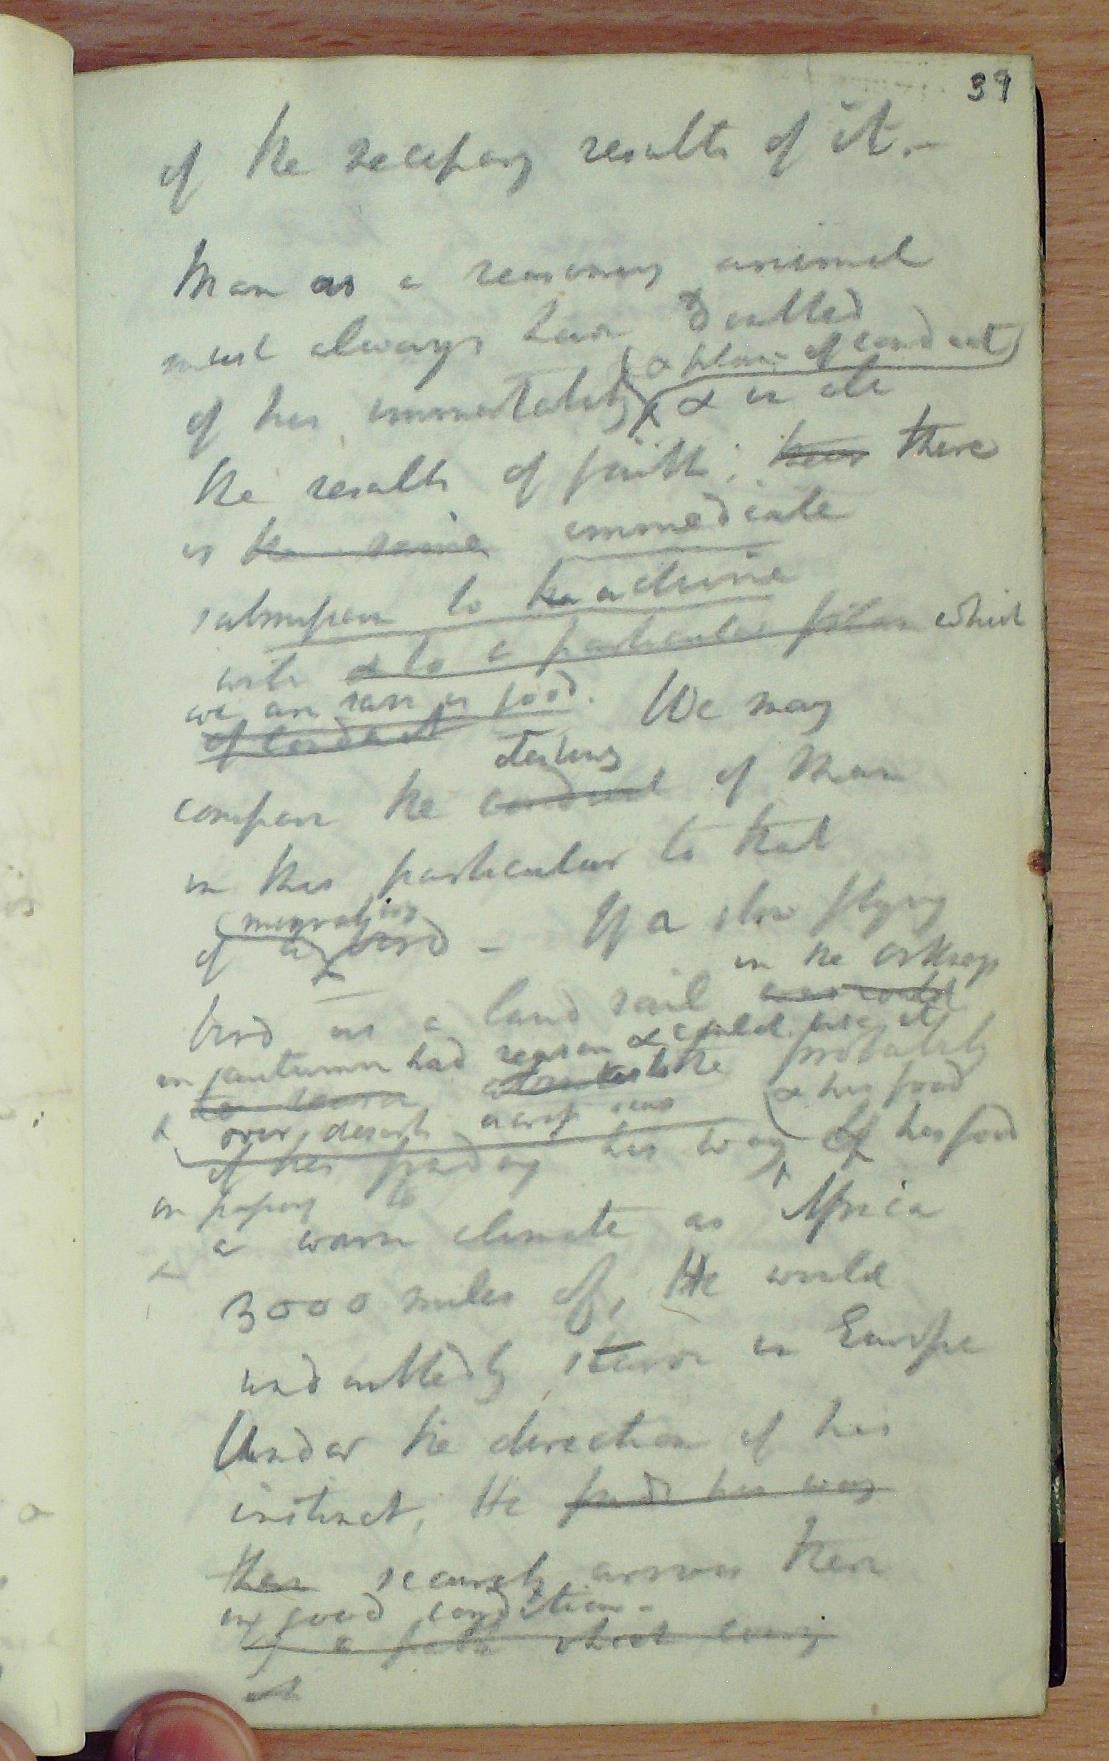 39
of the necessary results of it.-
Man as a reasoning animal
must always have doubted
of his immortality & plan of conduct
& in all
the results of faith; there
is the same immediate
submission to the a divine
will & to a particular plan which
we are sure is good. We may
of conduct
destiny
compare the conduct of Man
in this particular to that
migrating
of a bird - If a slow flying
in the Orkneys
bird as a land rail
in autumn had reason & could use it
to the probably
over deserts across seas & his food
of his finding his way of his food
in passing to
a warm climate as Africa
3000 miles off, He would
undoubtedly starve in Europe
Under the direction of his
instinct, He finds his way
securely arrives there
in good condition -
a path which